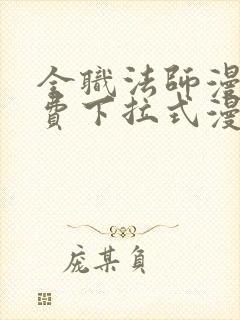 全職法師漫
費下拉式漫
庞某负